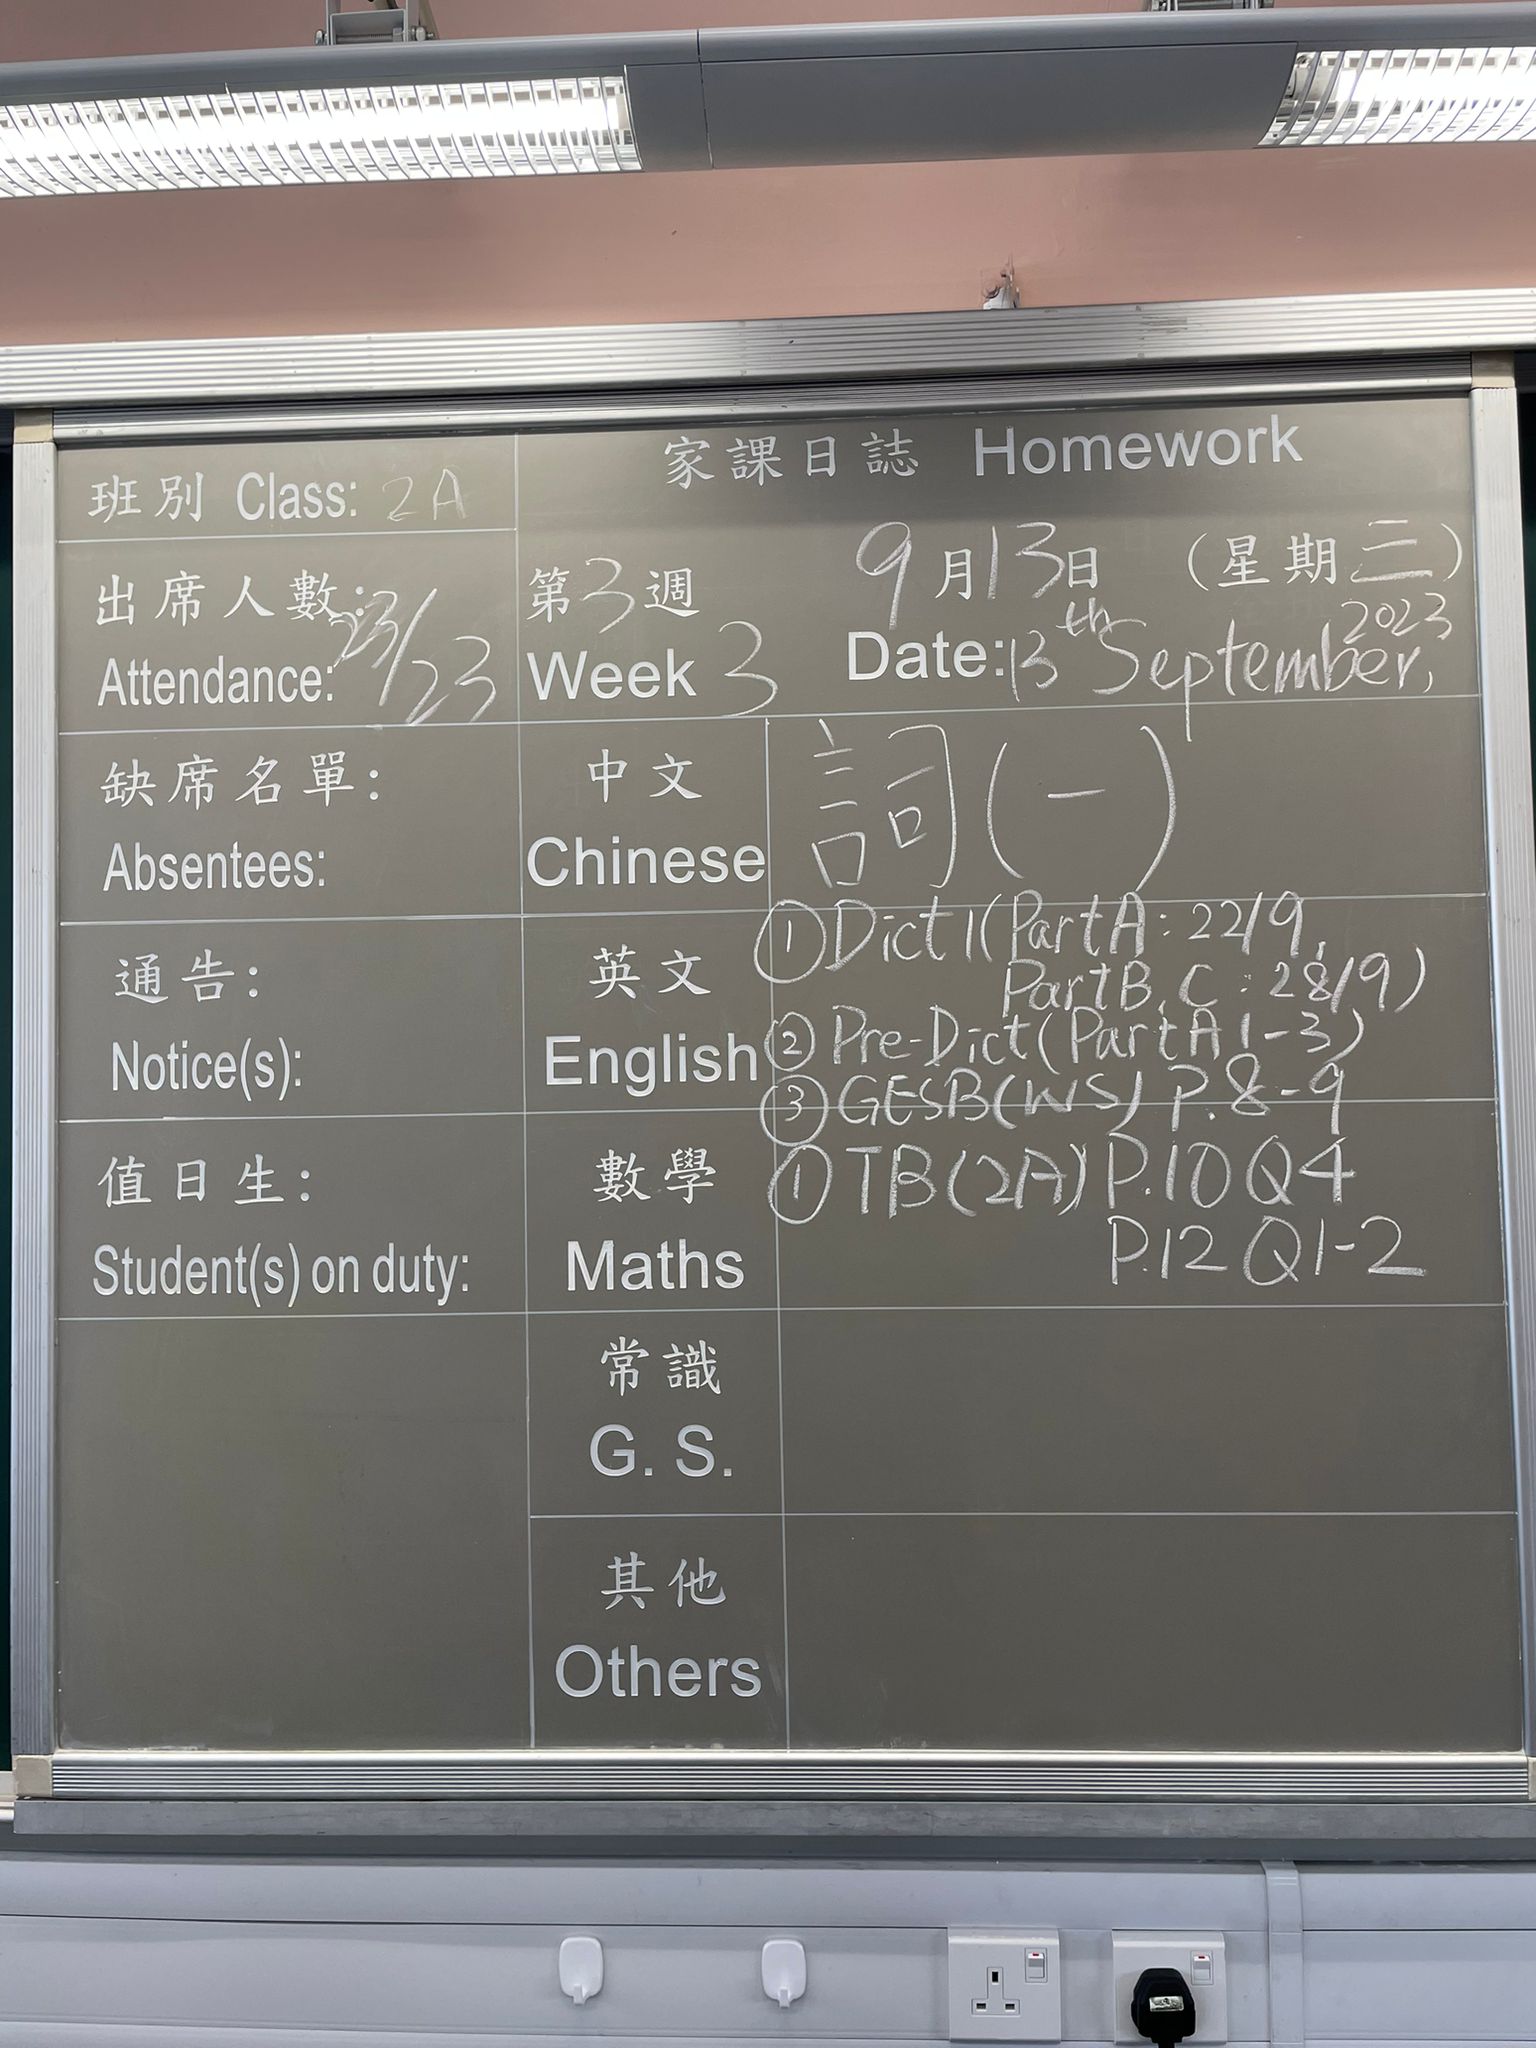 家課日誌 Homework
班別 Class: 2A
出席人數:
Attendance: 23/23
第3週
Week 3
9月13日 (星期三)
Date: 13th September, 2023
缺席名單:
Absentees:
中文
Chinese
詞(一)
通告:
Notice(s):
英文
English
① Dict 1 (Part A: 22/9,
Part B, C: 28/9)
② Pre-Dict (Part A 1-3)
③ GESB (WS) P.8-9
值日生:
Student(s) on duty:
數學
Maths
① TB (2A) P.10 Q4
P.12 Q1-2
常識
G. S.
其他
Others